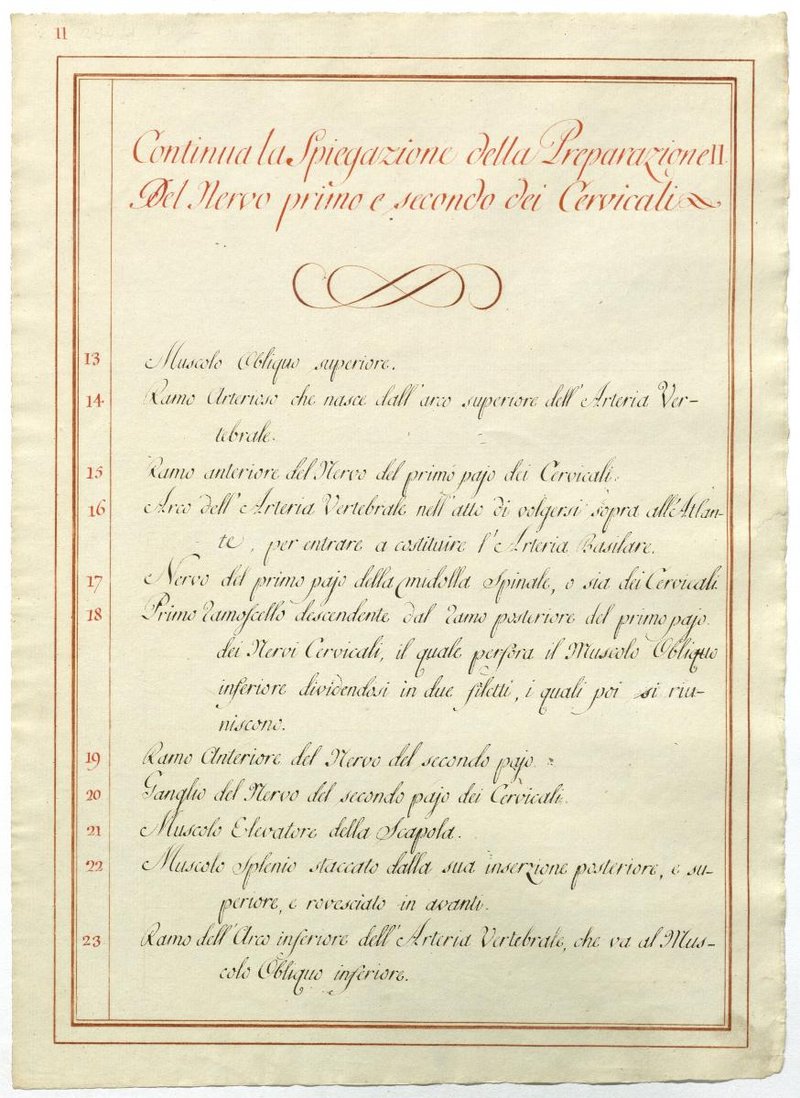 11
Continua la Spiegazione della Preparazione II
Del Nervo primo e secondo dei Cervicali
13 Muscolo Obliquo superiore.
14. Ramo Arterioso che nasce dall'arco superiore dell'Arteria Ver-
tebrale.
15 Ramo anteriore del Nervo del primo pajo dei Cervicali.
16 Arco dell'Arteria Vertebrale nell'atto di volgersi sopra all'Atlan-
te, per entrare a costituire l'Arteria Basilare.
17 Nervo del primo pajo della midolla Spinale, o sia dei Cervicali.
18 Primo ramoscello descendente dal ramo posteriore del primo pajo
dei Nervi Cervicali, il quale perfora il Muscolo Obliquo
inferiore dividendosi in due filetti, i quali poi si riu-
niscono.
19 Ramo Anteriore del Nervo del secondo pajo.
20 Ganglio del Nervo del secondo pajo dei Cervicali.
21 Muscolo Elevatore della Scapola.
22 Muscolo Splenio staccato dalla sua inserzione posteriore, e su-
periore, e rovesciato in avanti.
23 Ramo dell'Arco inferiore dell'Arteria Vertebrale, che va al Mus-
colo Obliquo inferiore.